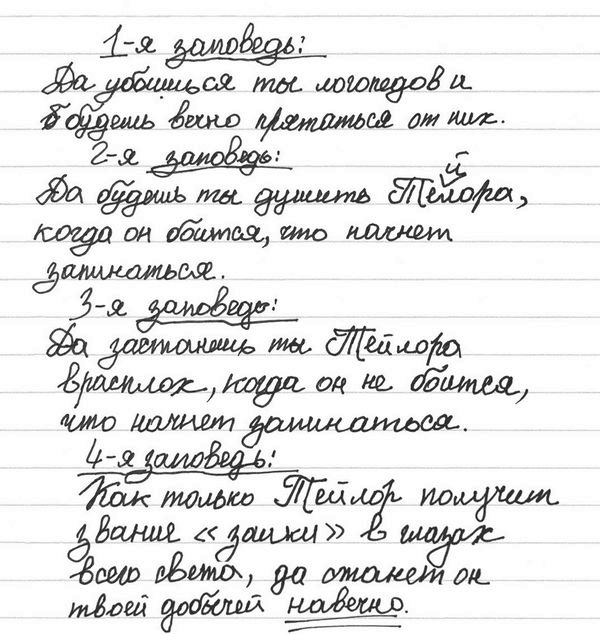 1-я заповедь:
Да убоишься ты логопедов и
будешь вечно прятаться от них.
2-я заповедь:
Да будешь ты душить Тейлора,
когда он боится, что начнет
запинаться.
3-я заповедь:
Да застанешь ты Тейлора
врасплох, когда он не боится,
что начнет запинаться.
4-я заповедь:
Как только Тейлор получит
звание «заики» в глазах
всего света, да станет он
твоей добычей навечно.